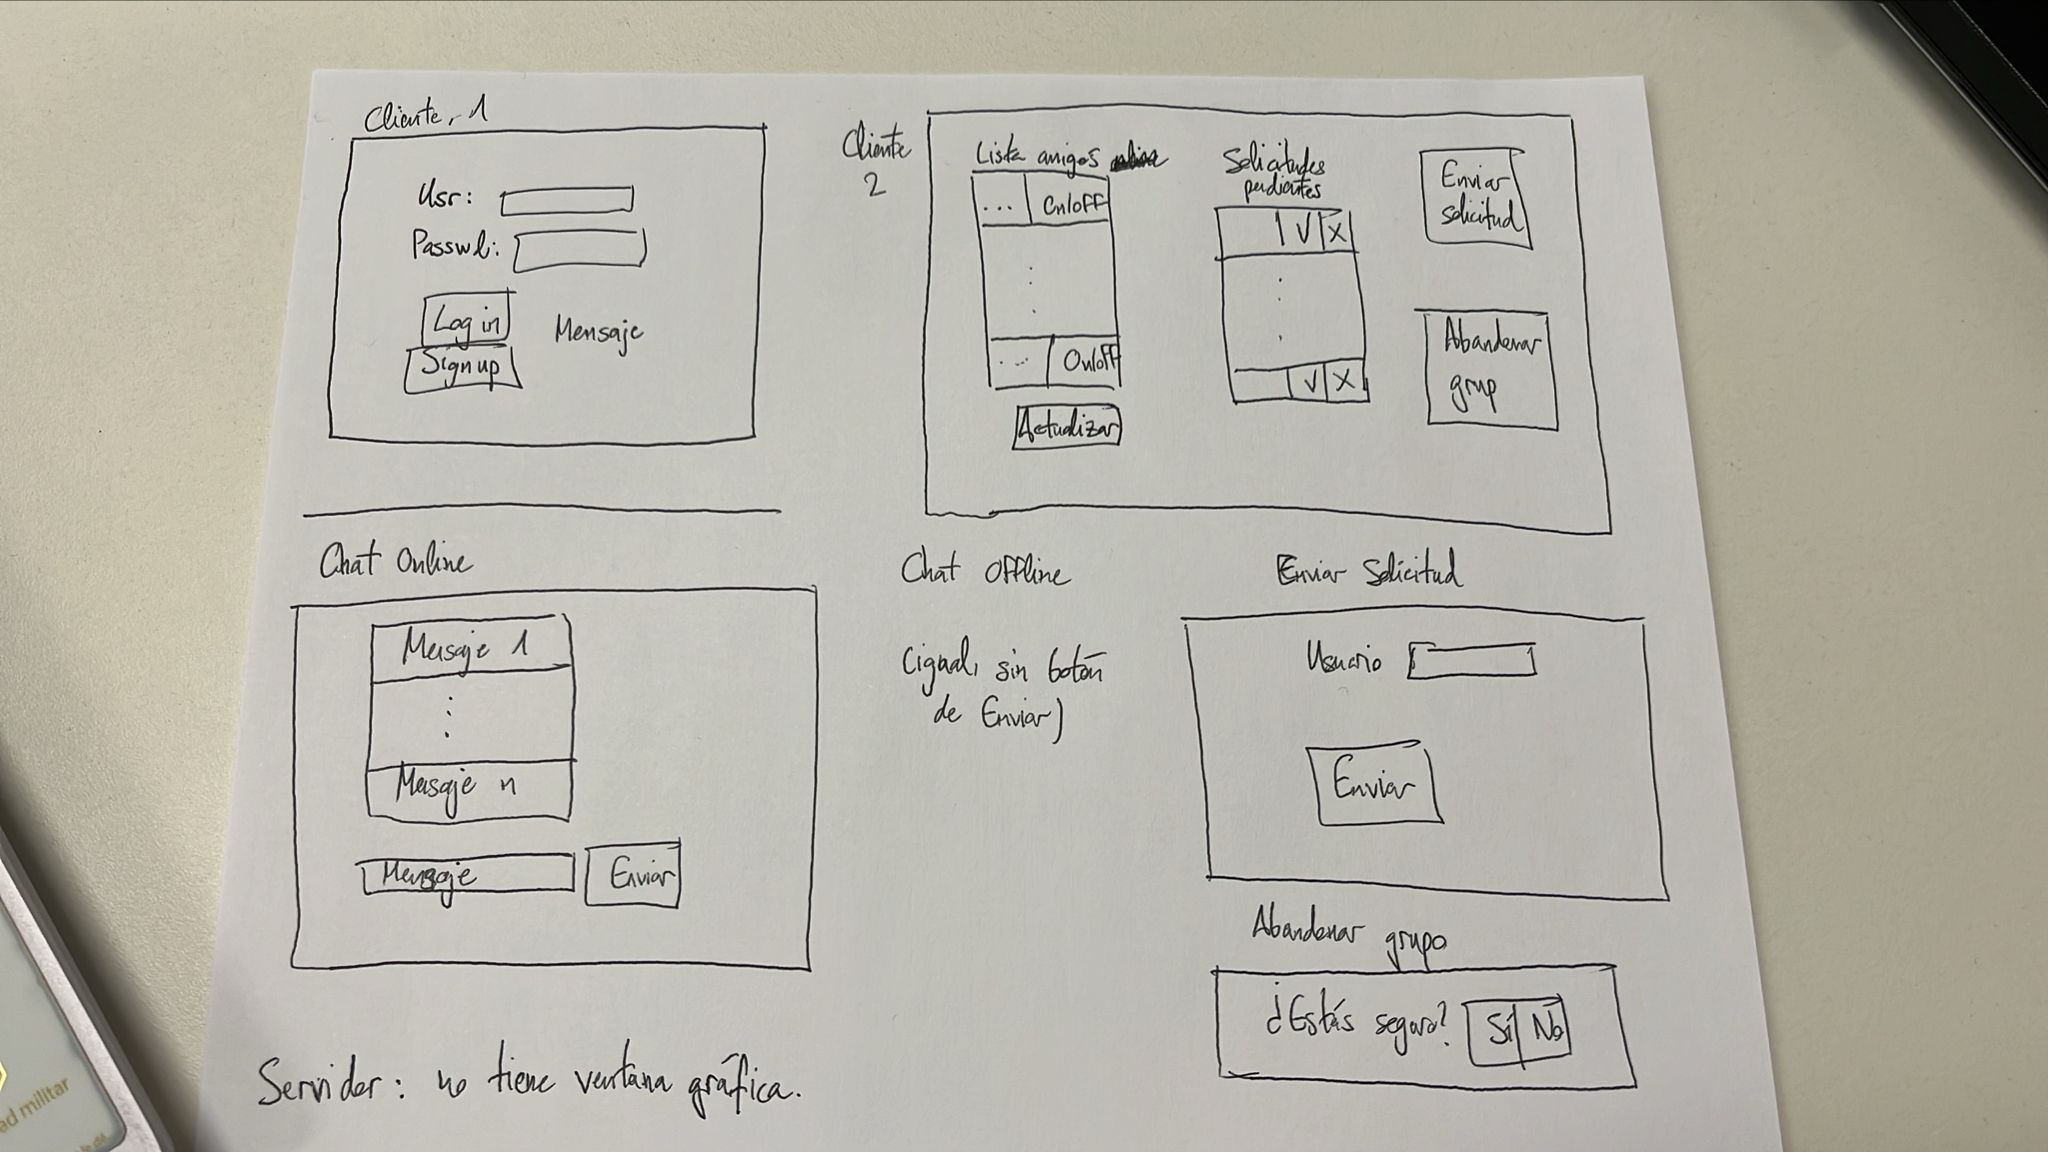 Cliente, 1
Usr:
Passwd:
Log in
Sign up
Mensaje
Cliente
2
Lista amigos
... On/off
... On/off
Actualizar
Solicitudes
pendientes
V X
V X
Enviar
solicitud
Abandonar
grup
Chat Online
Mensaje 1
Mensaje n
Mensaje
Enviar
Chat Offline
(igual, sin botón
de Enviar)
Enviar Solicitud
Usuario
Enviar
Abandonar grupo
¿Estás seguro? Sí No
Servidor: no tiene ventana gráfica.
ed militar